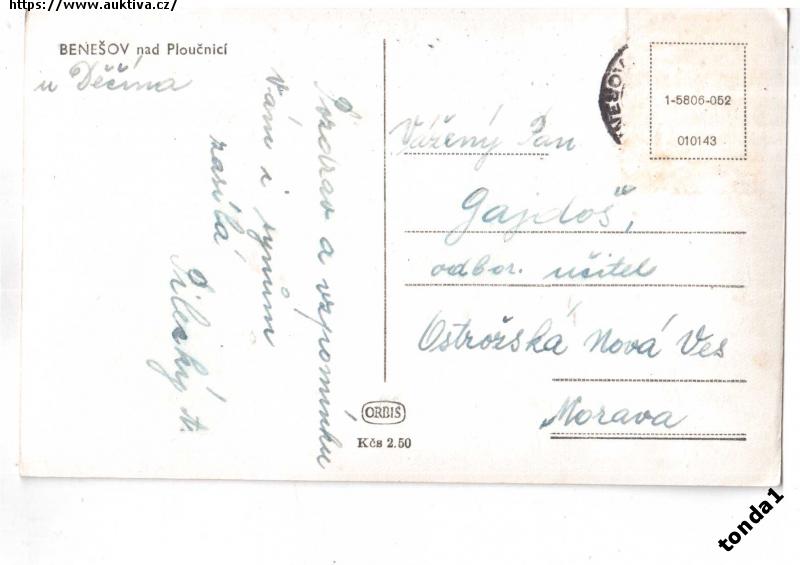 https://www.auktiva.cz/
BENEŠOV nad Ploučnicí
u Děčína
Pozdrav a vzpomínku
Vám i synům
zasílá
A.
Vážený Pan
Gajdoš,
odbor. učitel
Ostrožská Nová Ves
Morava
1-5806-052
010143
ORBIS
Kčs 2.50
tonda1